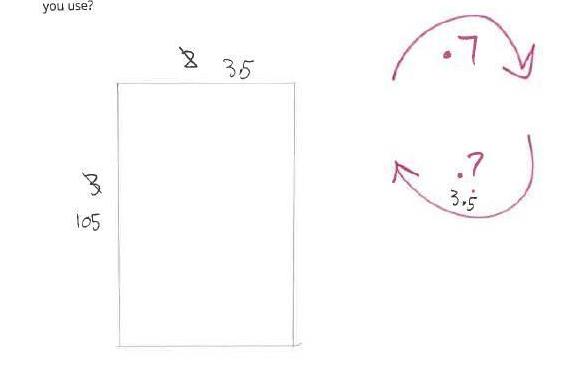 you use?
8 35
3
105
.7
.?
3.5